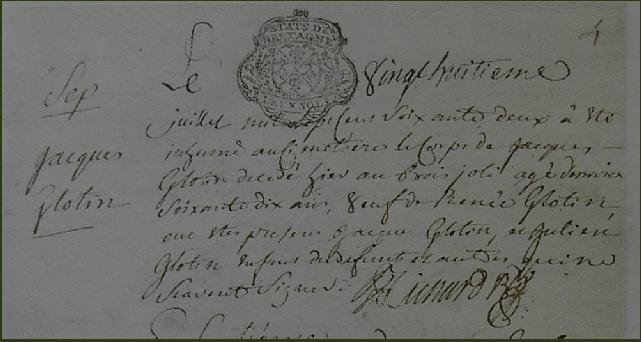 4
ETATS DE
BRETAGNE
DEUX SOLS
Sep
Jacques
Glotin
Le Vingt huitieme
juillet mil sept cens soixante deux à été
inhumé au cimetiere le Corps de jacques
Glotin decedé hier au bois joli agé denviron
soixante dix ans, Veuf de Renée Glotin,
ont étés presens Jacque Glotin, et julien
Glotin enfans du defunt et autres qui ne
scavent signer